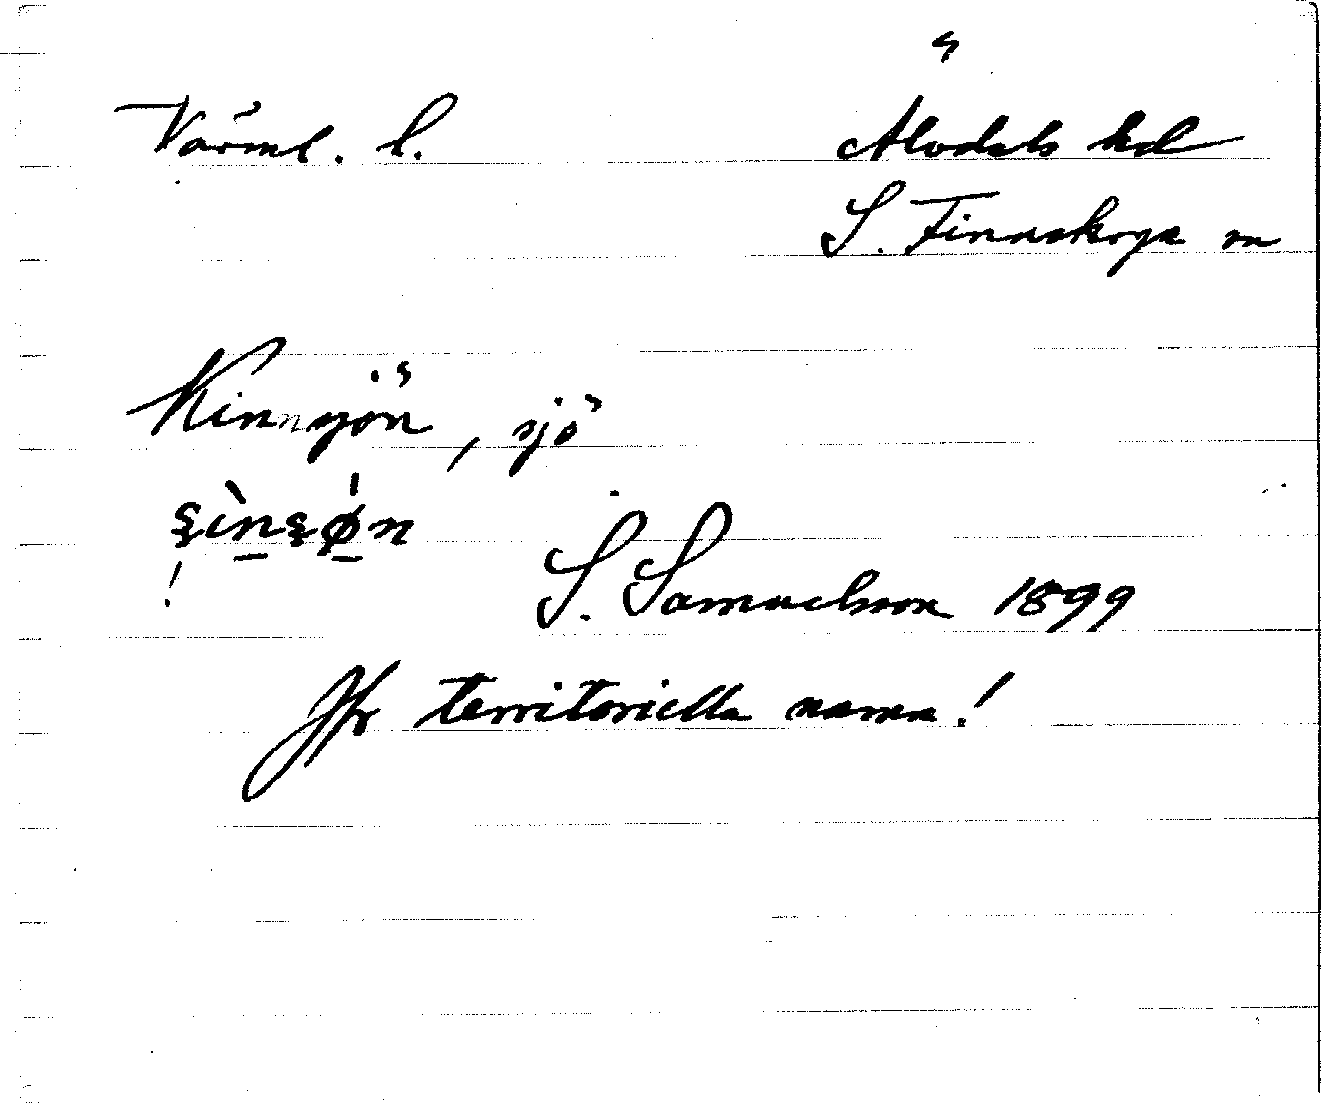 Värml. l.
Älvdals hd
S. Finnskoga sn
Kinnyön, sjö
S. Samuelsson 1899
Jfr territoriella namn!